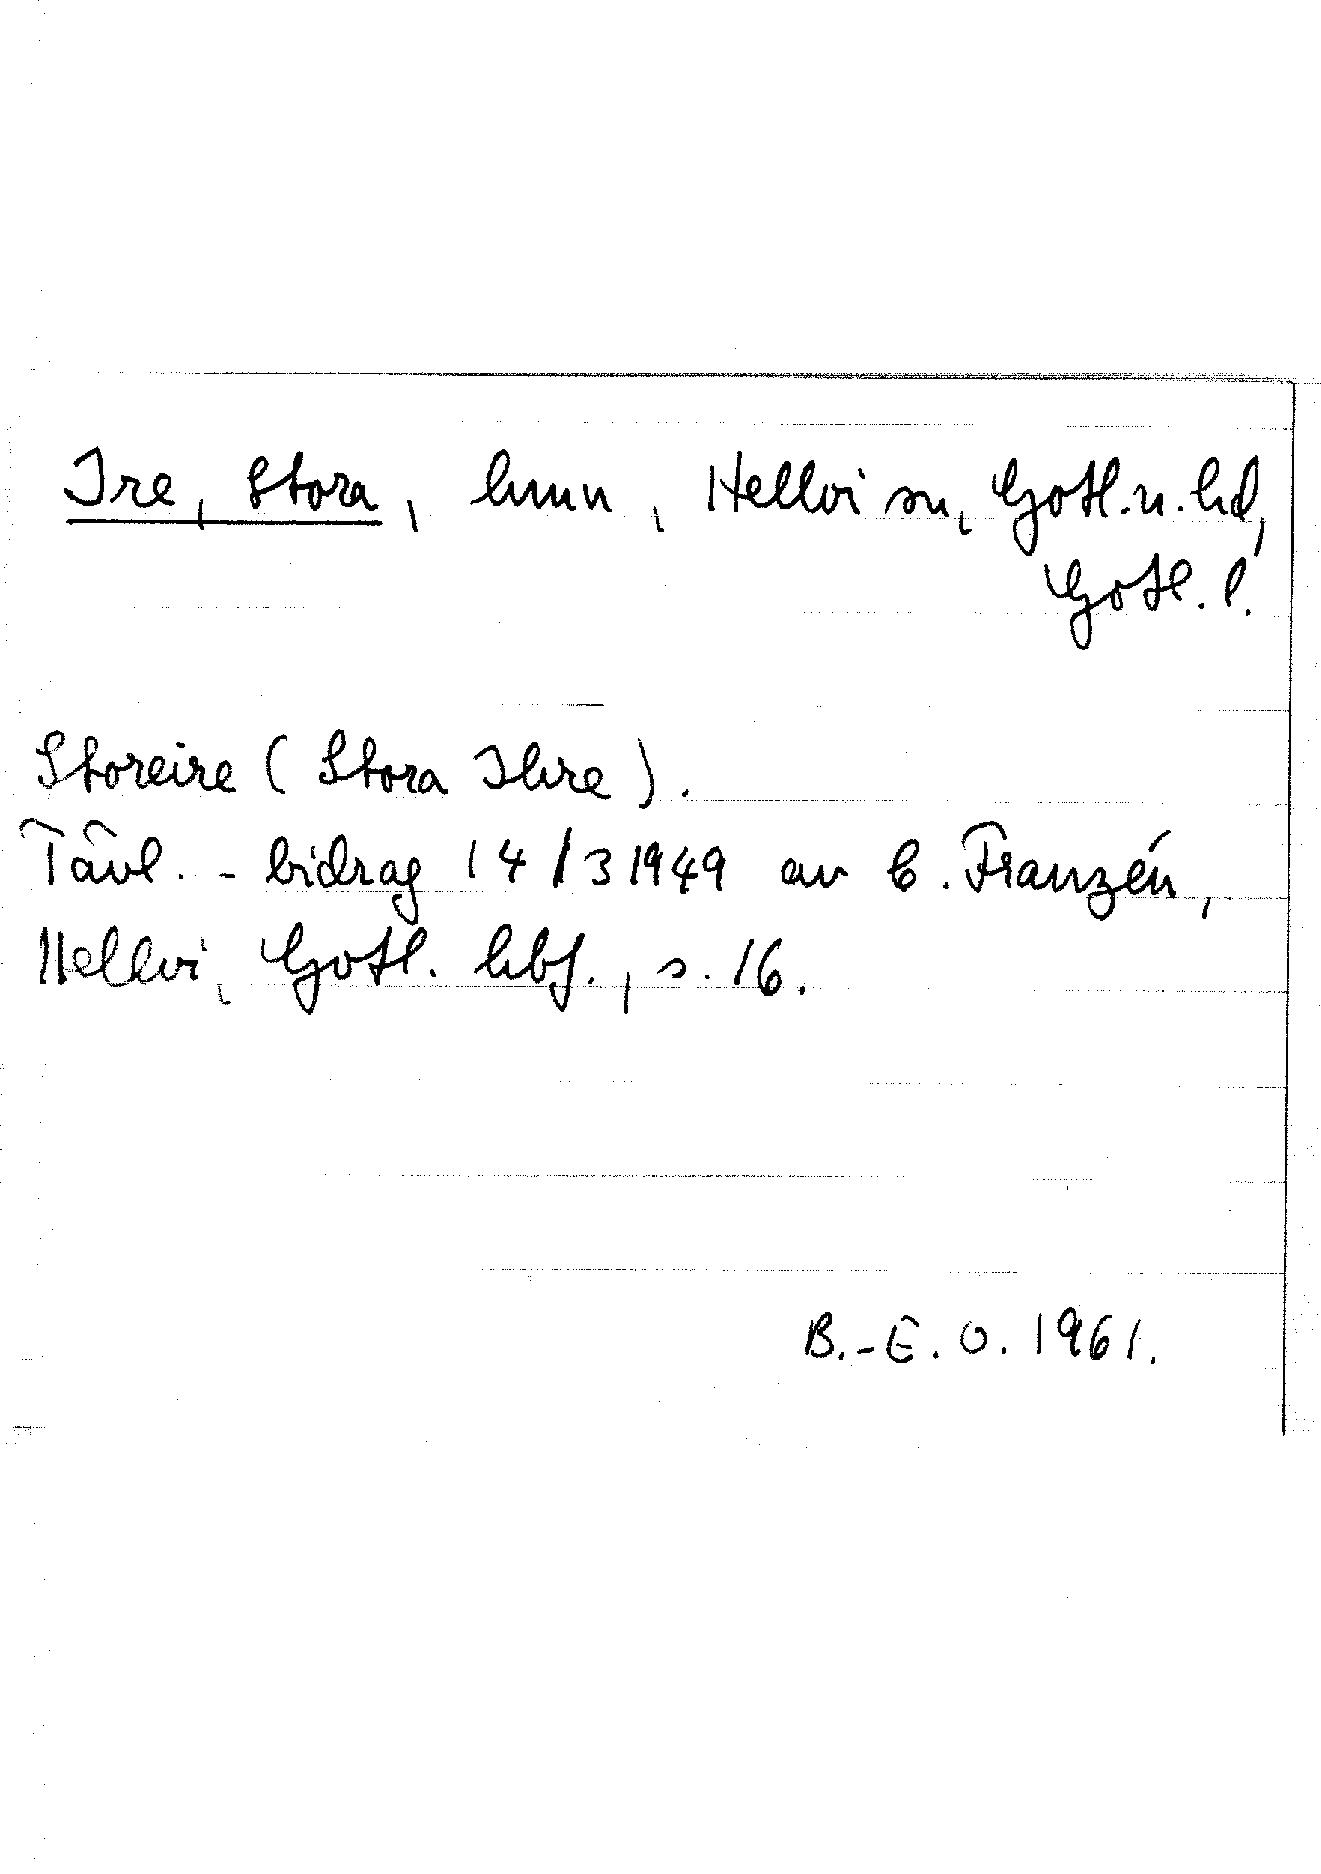 Ire, Stora, hmn, Hellvi sn, Gotl. n. hd,
Gotl. l.
Storeire (Stora Ihre).
Tävl. - bidrag 14/3 1949 av B. Franzén,
Hellvi, Gotl. hbf., s. 16.
B.-E. O. 1961.